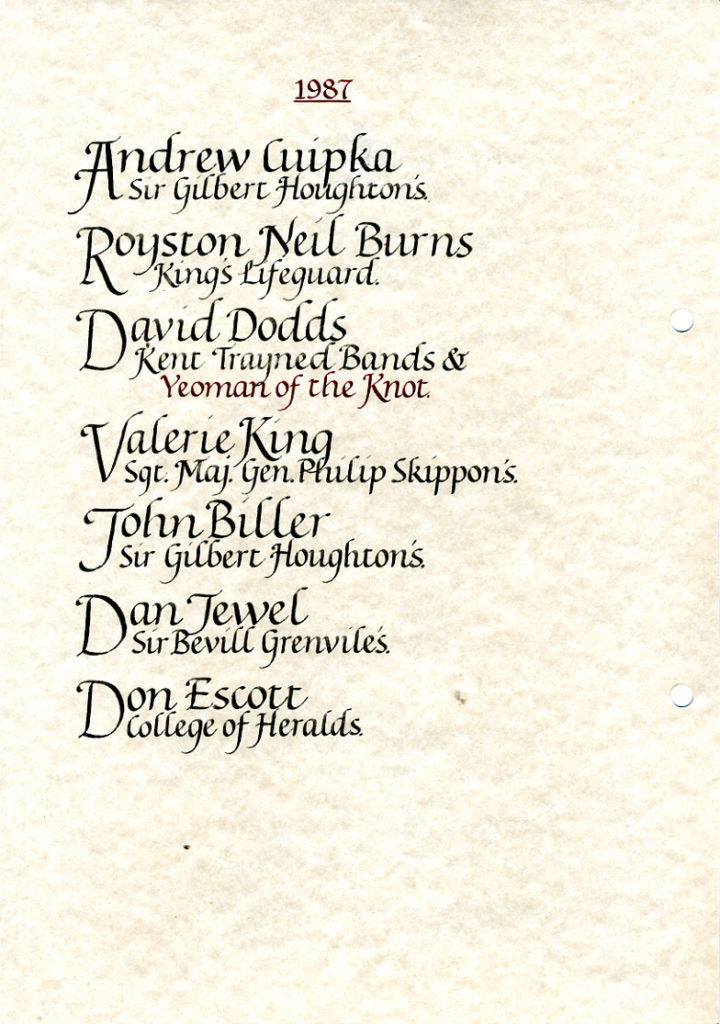 1987
Andrew Cuipka
Sir Gilbert Houghton's.
Royston Neil Burns
King's Lifeguard.
David Dodds
Kent Trayned Bands &
Yeoman of the Knot.
Valerie King
Sgt. Maj. Gen. Philip Skippon's.
John Biller
Sir Gilbert Houghton's.
Dan Jewel
Sir Bevill Grenvile's.
Don Escott
College of Heralds.